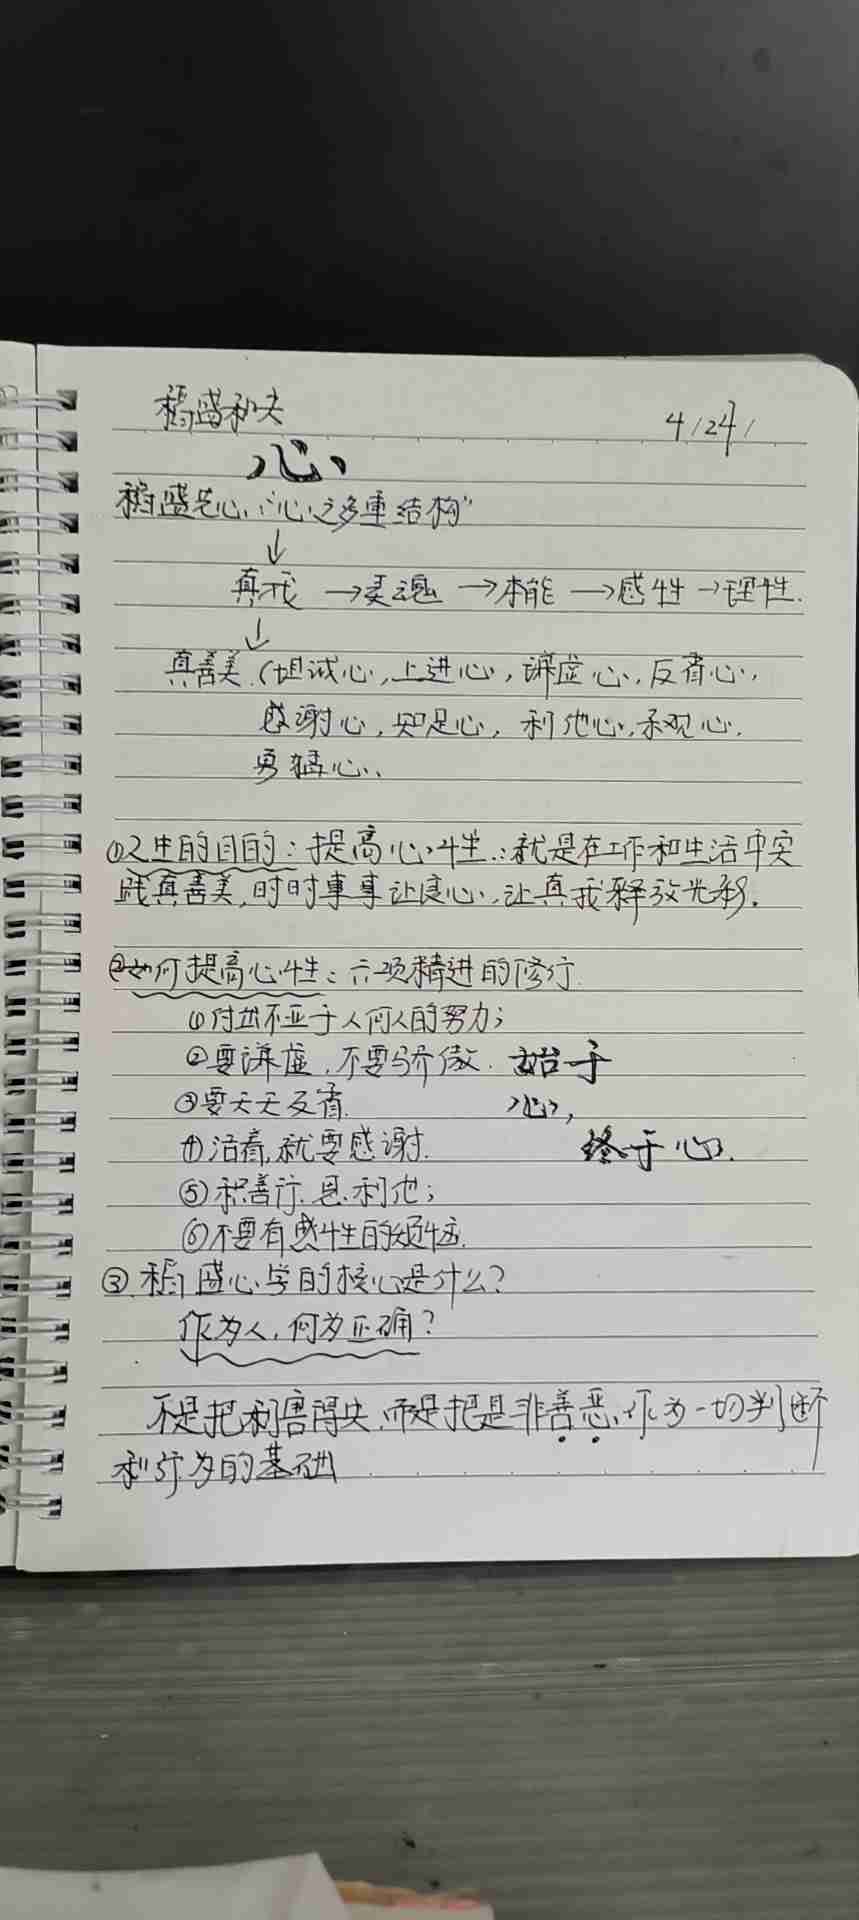 稻盛和夫
4/24/
心
稻盛先心“心之多重结构”
↓
真我 →灵魂 →本能 →感性 →理性.
↓
真善美.(坦诚心,上进心,谦虚心,反省心,
感谢心,知足心,利他心,乐观心.
勇猛心、
①人生的目的:提高心性.:就是在工作和生活中实
践真善美,时时事事让良心,让真我释放光彩.
②如何提高心性:六项精进的修行.
①付出不亚于人何人的努力;
②要谦虚,不要骄傲. 始于
③要天天反省. 心,
④活着,就要感谢. 终于心.
⑤积善行.思利他;
⑥不要有感性的烦恼.
③.稻盛心学的核心是什么?
作为人,何为正确?
不是把利害得失,而是把是非善恶,作为一切判断
和行为的基础